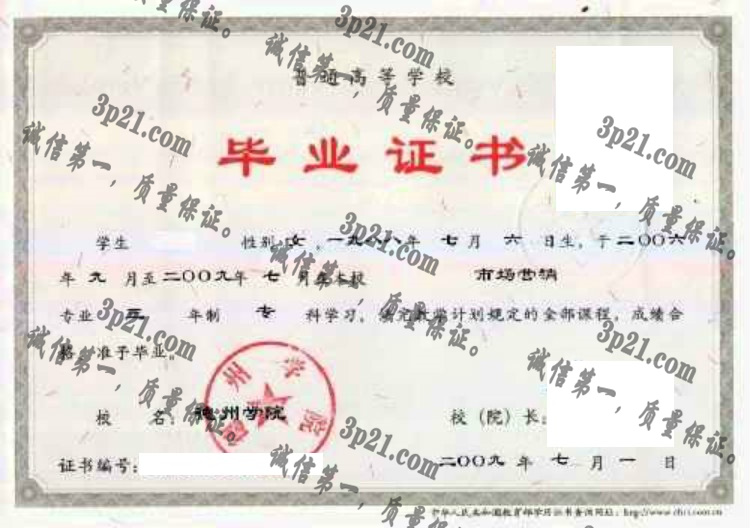 普通高等学校
毕业证书
学生 性别 女,一九八八年 七月 六 日生,于二〇〇六
年 九 月至二〇〇九年 七 月在本校 市场营销
专业 三 年制 专 科学习,修完教学计划规定的全部课程,成绩合
格,准予毕业。
校 名: 德州学院 校(院)长:
证书编号: 二〇〇九 年 七 月 一 日
中华人民共和国教育部学历证书查询网址:http://www.chsi.com.cn
州学院
3p21.com
诚信第一,质量保证。
3p21.com
诚信第一,质量保证。
3p21.com
诚信第一,质量保证。
3p21.com
诚信第一,质量保证。
3p21.com
诚信第一,质量保证。
3p21.com
诚信第一,质量保证。
3p21.com
诚信第一,质量保证。
3p21.com
诚信第一,质量保证。
质量保证。
诚信第一,